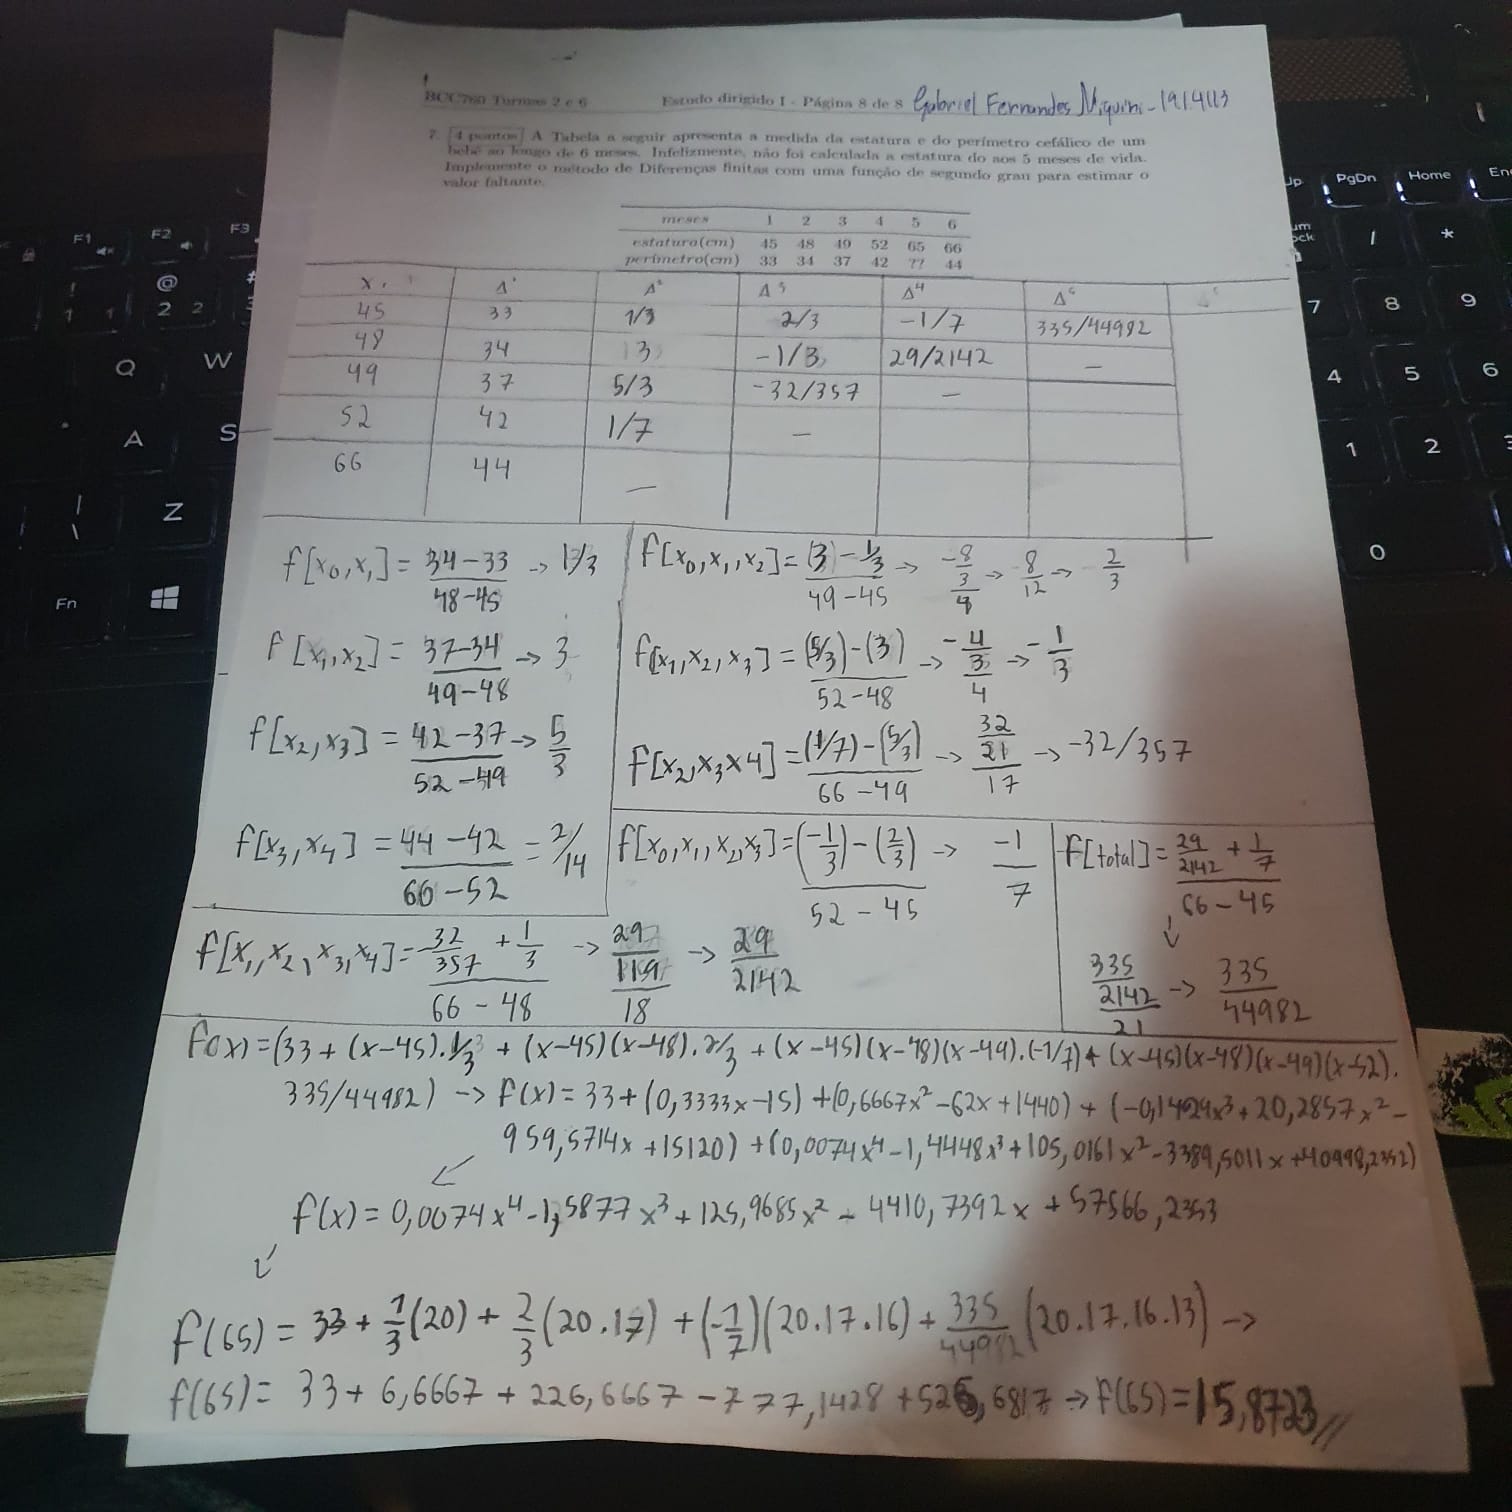 BCC760 Turmas 2 e 6 Estudo dirigido I - Página 8 de 8 Gabriel Fernandes Niquini - 1914113
7. [4 pontos] A Tabela a seguir apresenta a medida da estatura e do perímetro cefálico de um
bebê ao longo de 6 meses. Infelizmente, não foi calculada a estatura do aos 5 meses de vida.
Implemente o método de Diferenças finitas com uma função de segundo grau para estimar o
valor faltante.
meses 1 2 3 4 5 6
estatura(cm) 45 48 49 52 65 66
perímetro(cm) 33 34 37 42 ?? 44
45 33 1/3 2/3 -1/7 335/44982
48 34 3 -1/3 29/2142 —
49 37 5/3 -32/357 —
52 42 1/7 —
66 44 —
f[x0,x1] = 34-33 / 48-45 -> 1/3
f[x1,x2] = 37-34 / 49-48 -> 3
f[x2,x3] = 42-37 / 52-49 -> 5/3
f[x3,x4] = 44-42 / 66-52 = 2/14
f[x0,x1,x2] = (3) - 1/3 / 49-45 -> -8/3 / 4 -> 8/12 -> 2/3
f[x1,x2,x3] = (5/3)-(3) / 52-48 -> -4/3 / 4 -> -1/3
f[x2,x3x4] = (1/7)-(5/3) / 66-49 -> 32/21 / 17 -> -32/357
f[x0,x1,x2,x3] = (-1/3)-(2/3) / 52-45 -> -1/7
f[total] = 29/2142 + 1/7 / 66-45
↓ 335/2142 / 21 -> 335/44982
f[x1,x2,x3,x4] = -32/357 + 1/3 / 66-48 -> 29/119 / 18 -> 29/2142
f(x) = (33 + (x-45).1/3 + (x-45)(x-48).2/3 + (x-45)(x-48)(x-49).(-1/7) + (x-45)(x-48)(x-49)(x-52).
335/44982) -> f(x) = 33+(0,3333x-15)+(0,6667x²-62x+1440)+(-0,1429x³+20,2857x²-
959,5714x+15120)+(0,0074x⁴-1,4448x³+105,0161x²-3389,5011x+40998,2352)
f(x) = 0,0074x⁴-1,5877x³+125,9685x²-4410,7392x+57566,2353
f(65) = 33+1/3(20)+2/3(20.17)+(-1/7)(20.17.16)+335/44982(20.17.16.13) ->
f(65) = 33+6,6667+226,6667-777,1428+526,6817 -> f(65)=15,8723//
F1
F2
F3
Q
W
A
S
Z
Fn
PgDn
Home
7
8
9
4
5
6
1
2
0